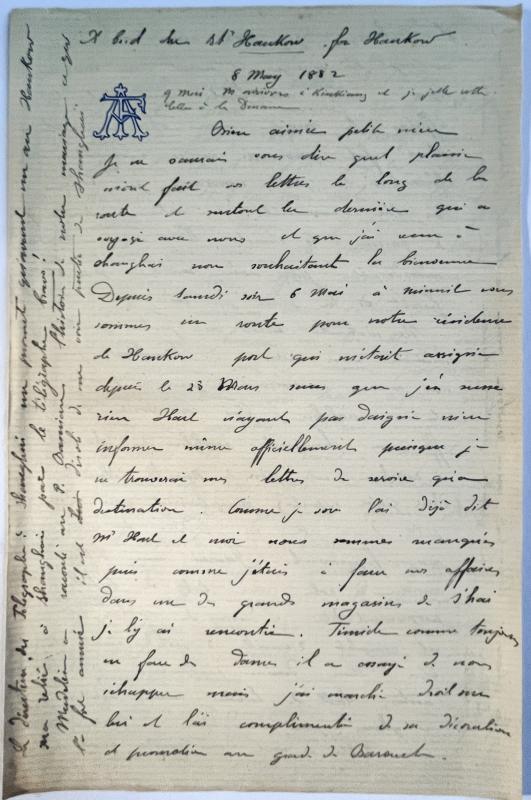 A bord du Str Hankow for Hankow
8 May 1882
9 Mai Nous arrivons à Kiukiang et je jette cette
lettre à la Douane
AF
Bien aimée petite mère
Je ne saurais vous dire quel plaisir
m'ont fait vos lettres le long de la
route et surtout la dernière qui a
voyagé avec nous et que j'ai reçue à
Shanghai nous souhaitant la bienvenue
Depuis samedi soir 6 Mai à minuit nous
sommes en route pour notre résidence
de Hankow port qui m'était assigné
depuis le 23 Mars sans que j'en susse
rien Hart n'ayant pas daigné m'en
informer même officiellement puisque je
ne trouverai mes lettres de service qu'à
destination. Comme je vous l'ai déjà dit
Mr Hart et moi nous sommes manqués
puis comme j'étais à faire nos affaires
dans un des grands magasins de S'hai
je l'y ai rencontré. Timide comme toujours
en face des dames il a essayé de nous
échapper mais j'ai marché droit sur
lui et l'ai complimenté de sa décoration
et promotion au grade de Baronet.
Le directeur des télégraphes à Shanghai me promet qu'avant un an Hankow
sera relié à Shanghai par le télégraphe bravo!
Madeleine a raconté au P. l'histoire de notre mariage ce qui
l'a fort amusé il est